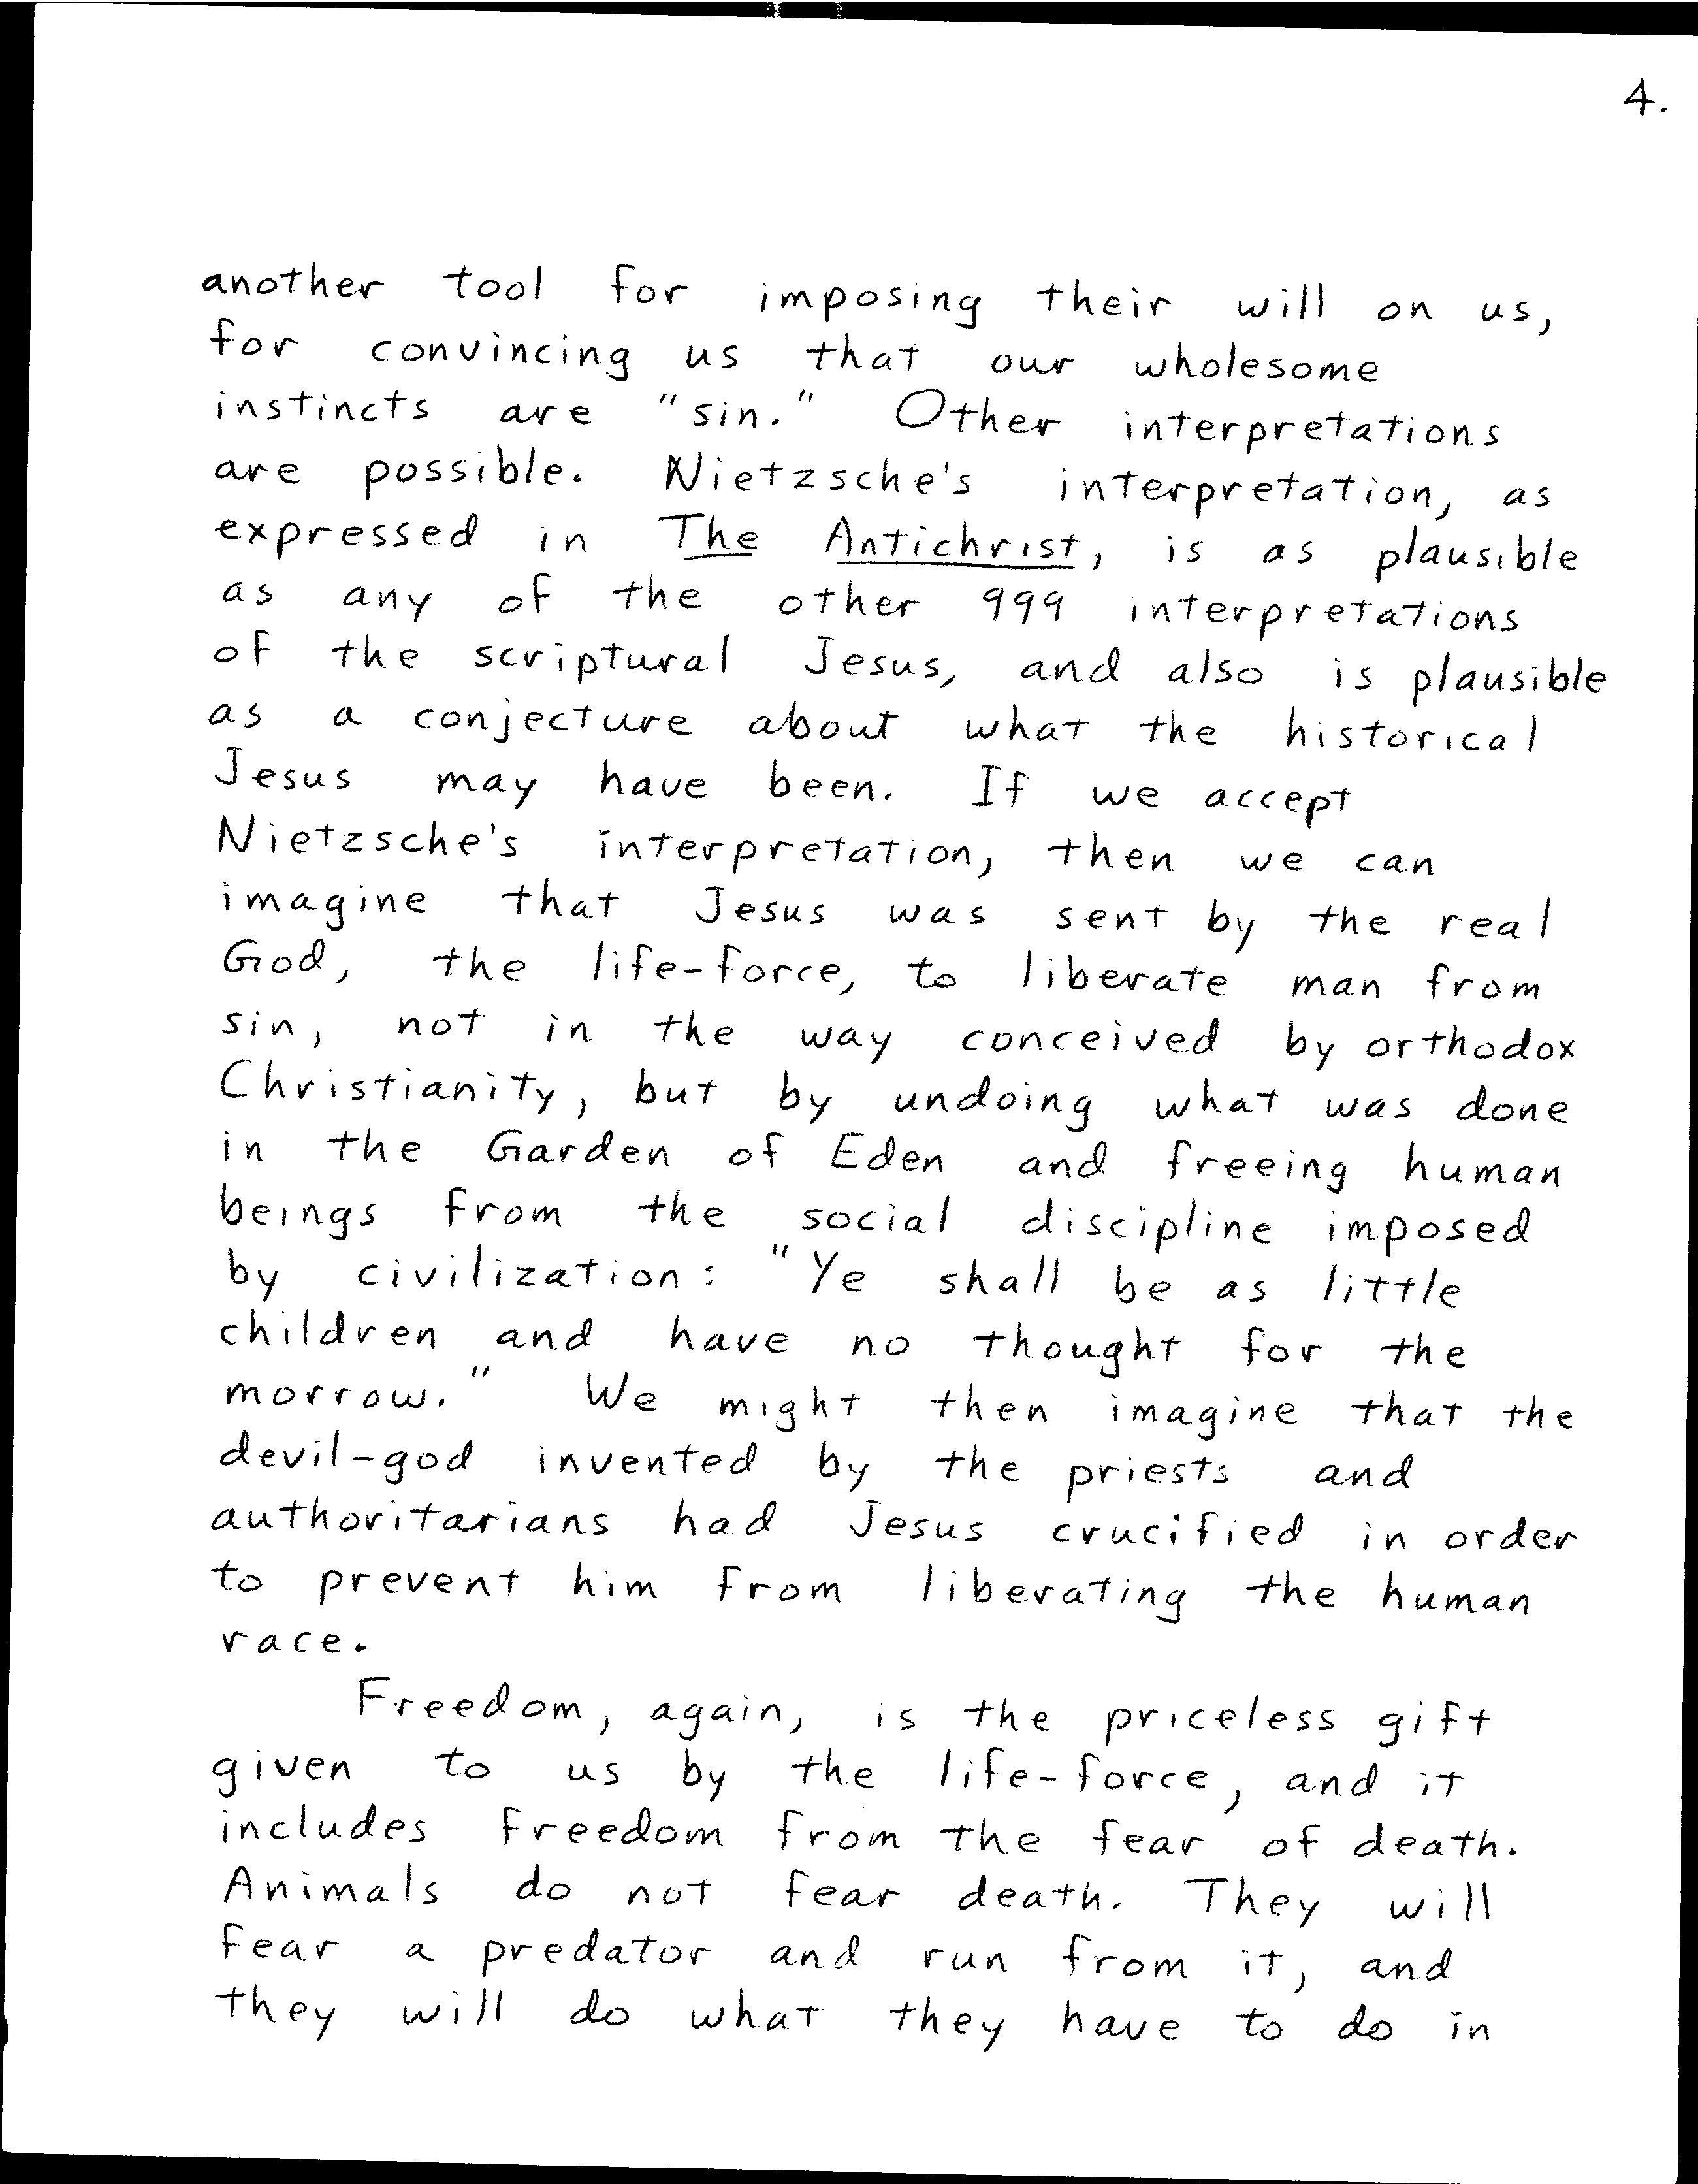 4.
another tool for imposing their will on us,
for convincing us that our wholesome
instincts are "sin." Other interpretations
are possible. Nietzsche's interpretation, as
expressed in The Antichrist, is as plausible
as any of the other 999 interpretations
of the scriptural Jesus, and also is plausible
as a conjecture about what the historical
Jesus may have been. If we accept
Nietzsche's interpretation, then we can
imagine that Jesus was sent by the real
God, the life-force, to liberate man from
sin, not in the way conceived by orthodox
Christianity, but by undoing what was done
in the Garden of Eden and freeing human
beings from the social discipline imposed
by civilization: "Ye shall be as little
children and have no thought for the
morrow." We might then imagine that the
devil-god invented by the priests and
authoritarians had Jesus crucified in order
to prevent him from liberating the human
race.
Freedom, again, is the priceless gift
given to us by the life-force, and it
includes freedom from the fear of death.
Animals do not fear death. They will
fear a predator and run from it, and
they will do what they have to do in